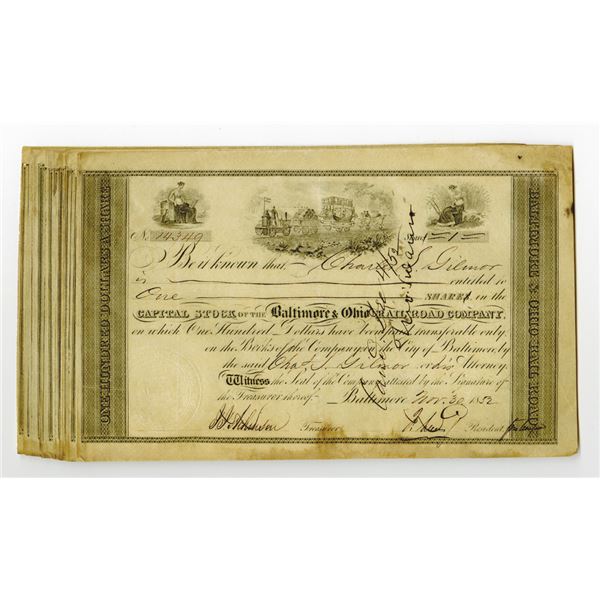 ONE HUNDRED DOLLARS A SHARE
No. 14349
Shares -1-
Be it known that Chas. S. Gilmor
is entitled to
One SHARES in the
CAPITAL STOCK OF THE Baltimore & Ohio RAIL ROAD COMPANY,
on which One Hundred Dollars have been paid transferable only
on the Books of the Company in the City of Baltimore, by
the said Chas. S. Gilmor or his Attorney
Witness the Seal of the Company attested by the Signature of
the Treasurer thereof Baltimore Nov. 30 1852
Treasurer
President
BALTIMORE & OHIO RAIL ROAD